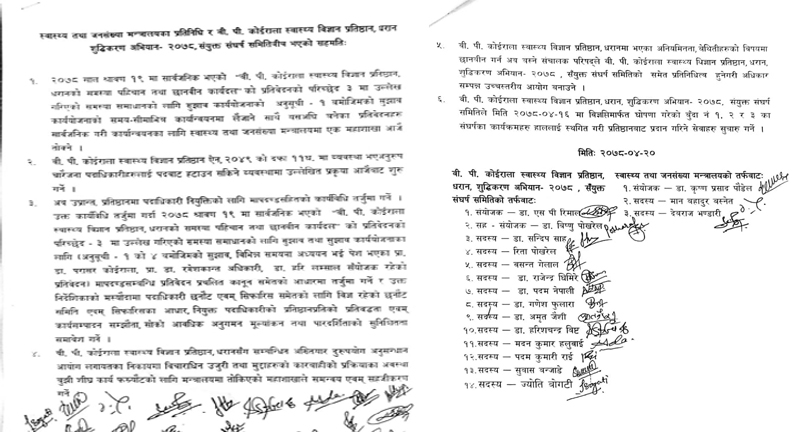 स्वास्थ्य तथा जनसंख्या मन्त्रालयका प्रतिनिधि र बी. पी. कोईराला स्वास्थ्य विज्ञान प्रतिष्ठान, धरान
शुद्धिकरण अभियान- २०७८, संयुक्त संघर्ष समितिबीच भएको सहमतिः
१. २०७८ साल श्रावण १९ मा सार्वजनिक भएको "बी. पी. कोईराला स्वास्थ्य विज्ञान प्रतिष्ठान,
धरानको समस्या पहिचान तथा छानवीन कार्यदल" को प्रतिवेदनको परिच्छेद ३ मा उल्लेख
गरिएको समस्या समाधानको लागि सुझाव कार्ययोजनाको अनुसूची - १ बमोजिमको सुझाव
कार्ययोजनाको समय-सीमाभित्र कार्यान्वयनमा लैजाने साथै यसअघि बनेका प्रतिवेदनहरू
सार्वजनिक गरी कार्यान्वयनका लागि स्वास्थ्य तथा जनसंख्या मन्त्रालयमा एक महाशाखा आजै
तोक्ने ।
२. बी. पी. कोईराला स्वास्थ्य विज्ञान प्रतिष्ठान ऐन, २०४९ को दफा ११घ. मा व्यवस्था भएअनुरुप
पदाधिकारीहरुलाई पदबाट हटाउन सकिने व्यवस्थामा उल्लेखित प्रकृया आजैबाट शुरु
गर्ने ।
३. अब उप्रान्त, प्रतिष्ठानमा पदाधिकारी नियुक्तिको लागि मापदण्डसहितको कार्यविधि तर्जुमा गर्ने ।
उक्त कार्यविधी तर्जुमा गर्दा २०७८ श्रावण १९ मा सार्वजनिक भएको "बी. पी. कोईराला
स्वास्थ्य विज्ञान प्रतिष्ठान, धरानको समस्या पहिचान तथा छानवीन कार्यदल" को प्रतिवेदनको
परिच्छेद - ३ मा उल्लेख गरिएको समस्या समाधानको लागि सुझाव तथा सुझाव कार्ययोजनाका
लागि (अनुसूची - १ को ४ बमोजिमको सुझाव, विभिन्न समयमा अध्ययन भई पेश भएका प्रा.
डा. परासर कोईराला, प्रा. डा. रमेशकान्त अधिकारी, डा. हरि लम्साल संयोजक रहेको
प्रतिवेदन) मापदण्डसम्बन्धि प्रतिवेदन प्रचलित कानून समेतको आधारमा तर्जुमा गर्ने र उक्त
निर्देशिकाको मर्स्यादामा पदाधिकारी छनौट एवम् सिफारिस समेतको लागि विज्ञ रहेको छनौट
समिति एवम् सिफारिसका आधार, नियुक्त पदाधिकारीको प्रतिष्ठानप्रतिको प्रतिवद्धता एवम्
कार्यसम्पादन सम्झौता, सोको आवधिक अनुगमन मूल्यांकन तथा पारदर्शिताको सुनिश्चितता
समावेश गर्ने ।
४. बी. पी. कोईराला स्वास्थ्य विज्ञान प्रतिष्ठान, धरानसँग सम्बन्धित अख्तियार दुरुपयोग अनुसन्धान
आयोग लगायतका निकायमा विचाराधिन उजुरी तथा मुद्दाहरुको कारवाहीको प्रक्रियाका अवस्था
बुझी शीघ्र कार्य फर्छ्यौटको लागि मन्त्रालयमा तोकिएको महाशाखाले समन्वय एवम् सहजीकरण
गर्ने
५. बी. पी. कोईराला स्वास्थ्य विज्ञान प्रतिष्ठान, धरानमा भएका अनियमितता, बेथितीहरुको विषयमा
छानवीन गर्न अब बस्ने संचालक परिषद्ले बी. पी. कोईराला स्वास्थ्य विज्ञान प्रतिष्ठान, धरान,
शुद्धिकरण अभियान- २०७८ , सँयुक्त संघर्ष समितिको समेत प्रतिनिधित्व हुनेगरी अधिकार
सम्पन्न उच्चस्तरीय आयोग बनाउने ।
६. बी. पी. कोईराला स्वास्थ्य विज्ञान प्रतिष्ठान, धरान, शुद्धिकरण अभियान- २०७८, संयुक्त संघर्ष
समितिले मिति २०७८-०४-१६ मा विज्ञप्तिमार्फत घोषणा गरेको बुँदा नं १, २ र ३ का
संघर्षका कार्यक्रमहरु हाललाई स्थगित गरी प्रतिष्ठानबाट प्रदान गरिने सेवाहरु सुचारु गर्ने ।
मितिः २०७८-०४-२०
बी. पी. कोईराला स्वास्थ्य विज्ञान प्रतिष्ठान,
धरान, शुद्धिकरण अभियान- २०७८ , सँयुक्त
संघर्ष समितिको तर्फबाटः
१. संयोजक – डा. एस पी रिमाल
२. सह - संयोजक – डा. विष्णु पोखरेल
३. सदस्य – डा. सन्दिप साह
४. सदस्य – रिता पोखरेल
५. सदस्य – वसन्त गेलाल
६. सदस्य – डा. राजेन्द्र घिमिरे
७. सदस्य – डा. पदम नेपाली
८. सदस्य – डा. गणेश फुलारा
९. सर्दस्य – डा. अमृत जैशी
१०. सदस्य – डा. हरिशचन्द्र विष्ट
११. सदस्य – मदन कुमार हलुवाई
१२. सदस्य – पदम कुमारी राई
१३. सदस्य – सुवास वन्जाडे
१४. सदस्य – ज्योति योगटी
स्वास्थ्य तथा जनसंख्या मन्त्रालयको तर्फबाटः
१. संयोजक – डा. कृष्ण प्रसाद पौडेल
२. सदस्य – मान बहादुर बस्नेत
३. सदस्य – देवराज भण्डारी